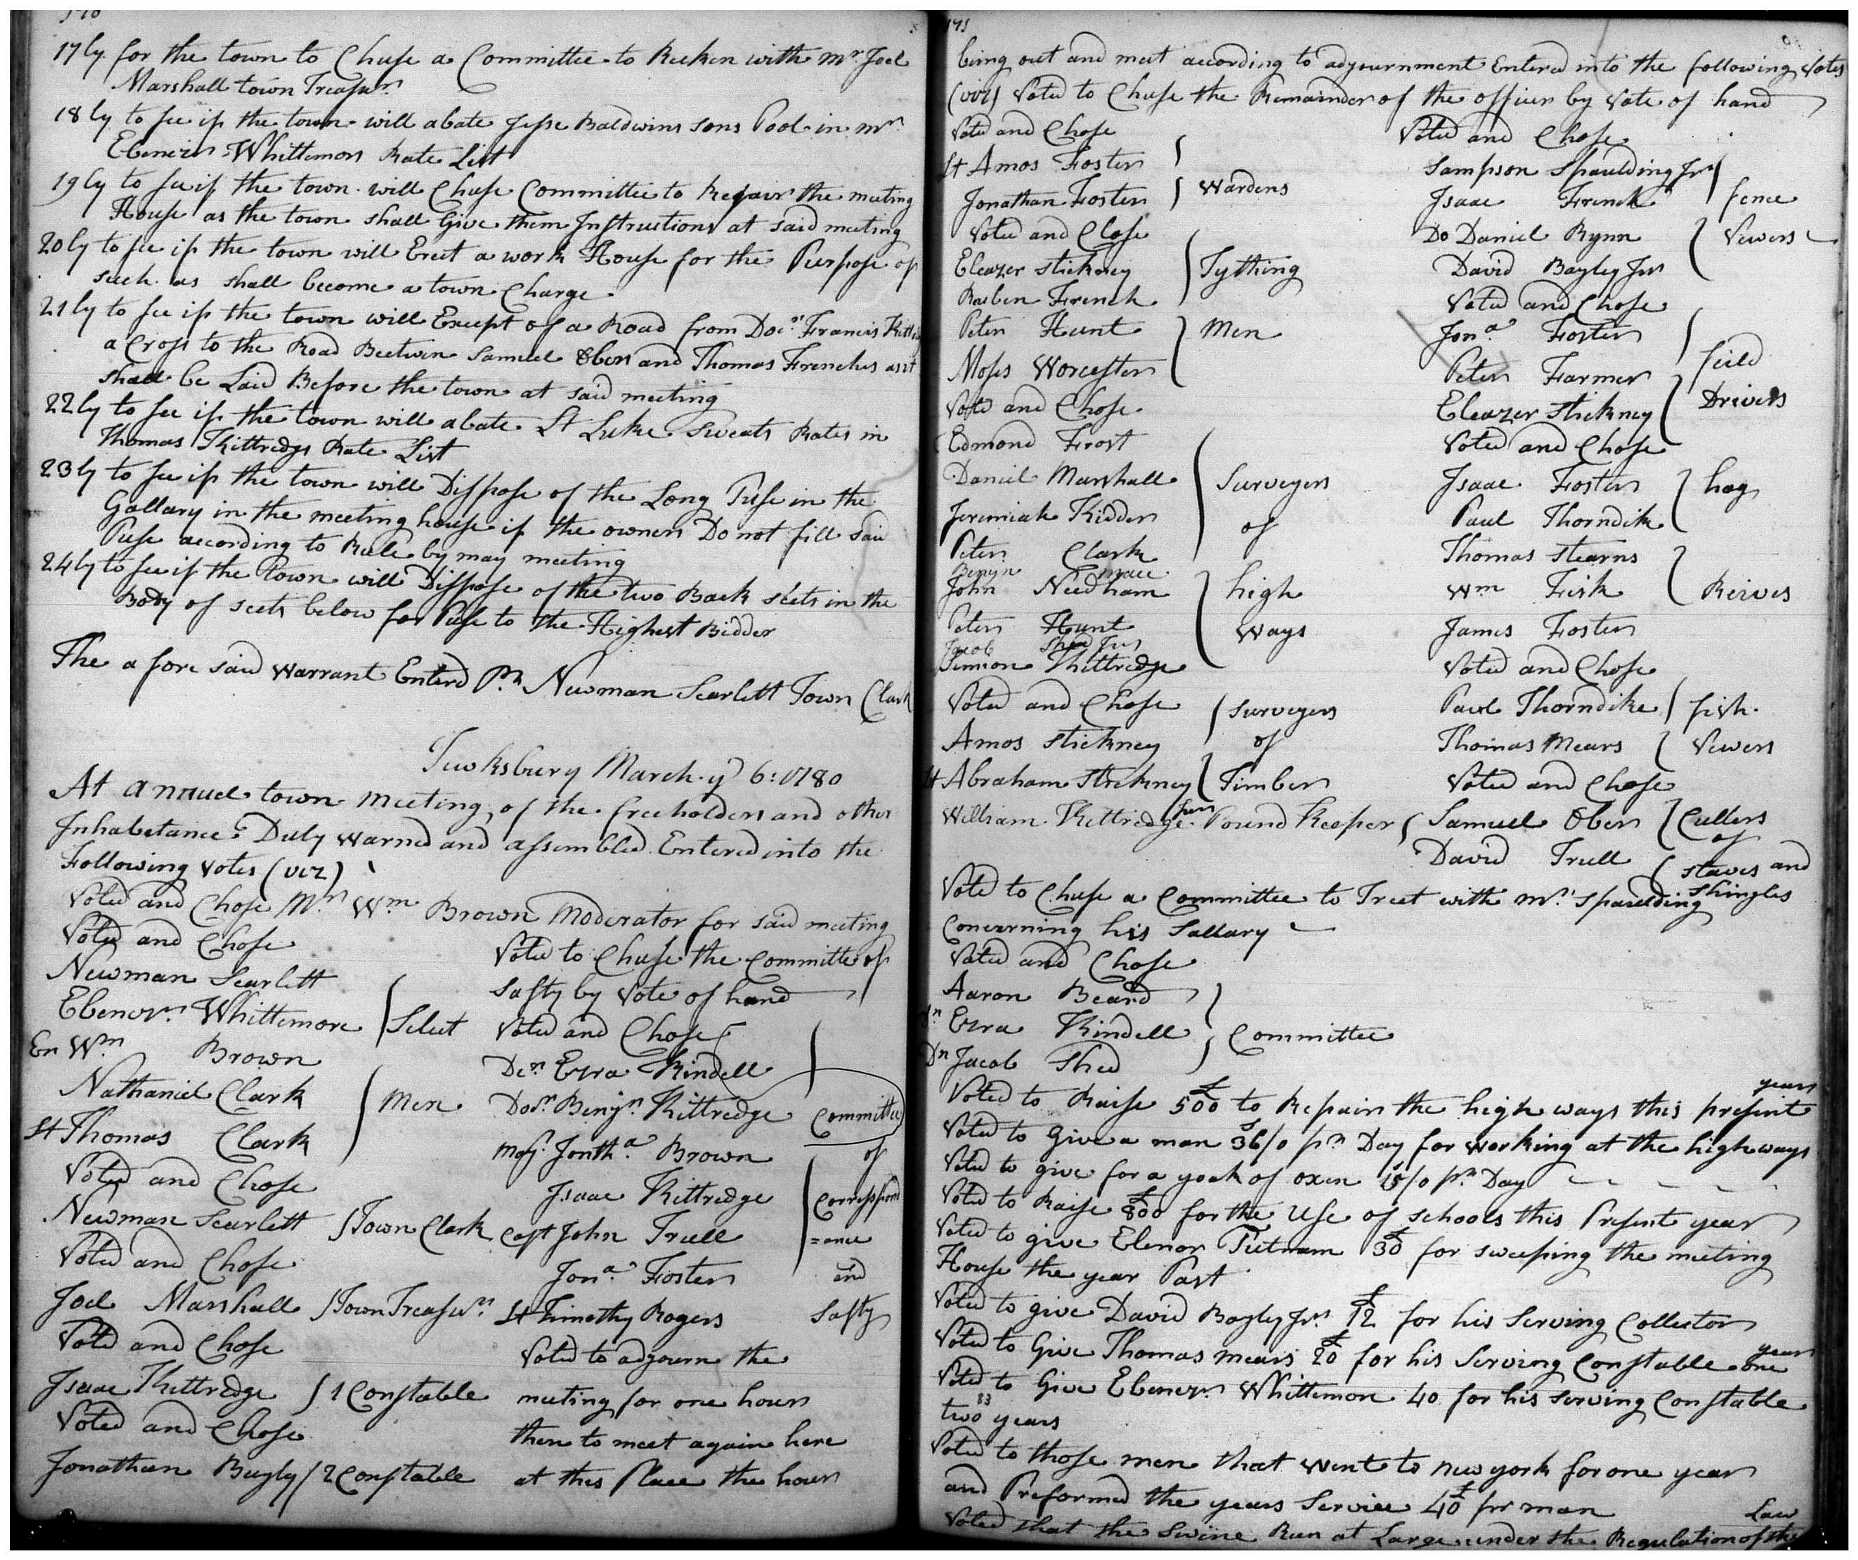 170
17ly for the town to Chuse a Committee to Recken with mr Joel
Marshall town Treasur
18ly to see if the town will abate Jesse Baldwins sons Pool in mr
Ebenezer Whittemors Rate List
19ly to see if the town will Chuse Committee to Repair the meeting
House as the town shall Give them Instructions at said meeting
20ly to see if the town will Erect a work House for the Purpose of
such as shall become a town Charge
21ly to see if the town will Except of a Road from Docr Francis
a Cross to the Road Beetwen Samuel Obers and Thomas Frenches as it
shall be Laid Before the town at said meeting
22ly to see if the town will abate Lt Luke Sweats Rates in
Thomas Kittredgs Rate List
23ly to see if the town will Disspose of the Long Puse in the
Gallary in the meeting house if the owners Do not fill said
Puse according to Rule by may meeting
24ly to see if the town will Disspose of the two Back seets in the
Body of seets below for Puse to the Highest Bidder
The a fore said warrant Enterd Pr Newman Scarlett Town Clark
Tewksbury March ye 6: 1780
At annuel town meeting of the freeholders and other
Inhabetance Duly warned and assembled Entered into the
Following votes (viz)
Voted and Chose Mr Wm Brown Moderator for said meeting
Voted and Chose
Newman Scarlett
Ebenezr Whittemore
En Wm Brown
Nathaniel Clark
Lt Thomas Clark
Select
Men
Voted and Chose
Newman Scarlett Town Clark
Voted and Chose
Joel Marshall Town Treasurr
Voted and Chose
Isaac Kittredge 1 Constable
Voted and Chose
Jonathan Bayly 2 Constable
Voted to Chuse the Committe of
Safty by Vote of hand
Voted and Chose
Den Ezra Kindell
Docr Benjn Kittredge
Majr Jontha Brown
Isaac Kittredge
Capt John Trull
Jona Foster
Lt Timothy Rogers
Committee
of
Correspond
=ance
and
Safty
Voted to adjourn the
meeting for one hour
then to meet again here
at this Place the hour
171
being out and meet according to adjournment Entered into the following Votes
(viz) Voted to Chuse the Remainder of the officers by Vote of hand
Voted and Chose
Lt Amos Foster
Jonathan Foster
Wardens
Voted and Chose
Eleazer Stickney
Reuben French
Peter Hunt
Moses Worcester
Tything
Men
Voted and Chose
Edmond Frost
Daniel Marshall
Jeremiah Kidder
Peter Clark
Benjn
John Needham
Peter Hunt
Jacob Shed Jur
Simeon Kittredge
Surveyers
of
high
ways
Voted and Chose
Amos Stickney
Lt Abraham Stickney
Surveyers
of
Timber
William Kittredge Jur Pound Keeper
Voted and Chose
Sampson Spaulding Jr
Isaac French
Do Daniel Rynn
David Bayley Jur
fence
Vewers
Voted and Chose
Jona Foster
Peter Farmer
Eleazer Stickney
feild
Drivers
Voted and Chose
Isaac Foster
Paul Thorndik
Thomas Stearns
Wm Fisk
James Foster
hog
Reives
Voted and Chose
Paul Thorndike
Thomas Mears
fish
Vewers
Voted and Chose
Samuel Ober
David Trull
Cullers
of
staves and
Shingles
Voted to Chuse a Committee to Treet with mr Spaulding
Concerning his Sallary
Voted and Chose
Aaron Beard
Dn Ezra Kindell
Dn Jacob Shed
Committee
Voted to Raise £500 to Repair the high ways this present
years
Voted to Give a man 36/0 pr Day for working at the high ways
Voted to give for a yoak of oxen 15/0 pr Day
Voted to Raise £800 for the Use of schools this Present year
Voted to give Elenor Putnam £30 for sweeping the meeting
House the year Past
Voted to give David Bayley Jr £12 for his Serving Collector
Voted to Give Thomas mears £20 for his Serving Constable one
year
Voted to Give Ebenezr Whittemor 40 for his serving Constable
two years
Voted to those men that went to new york for one year
and Preformed the years Service £40 pr man
Voted that the Swine Run at Large under the Regulation of the
Law